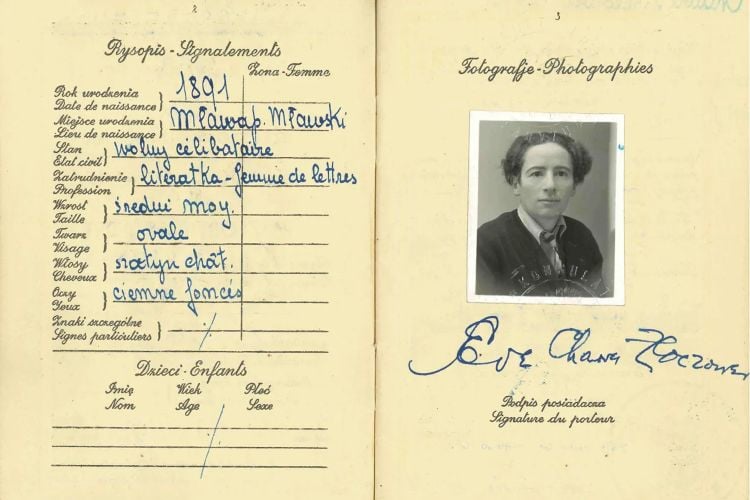 2
Rysopis - Signalements
Żona - Femme
Rok urodzenia
Date de naissance } 1891
Miejsce urodzenia
Lieu de naissance } Mława p. Mławski
Stan
Etat civil } wolny célibataire
Zatrudnienie
Profession } literatka - femme de lettres
Wzrost
Taille } średni moy.
Twarz
Visage } ovale
Włosy
Cheveux } szatyn chât.
Oczy
Yeux } ciemne foncés
Znaki szczególne
Signes particuliers }
Dzieci - Enfants
Imię Wiek Płeć
Nom Age Sexe
3
Fotografje - Photographies
KONSULAT
Eve Chawa Złoczower
Podpis posiadacza
Signature du porteur